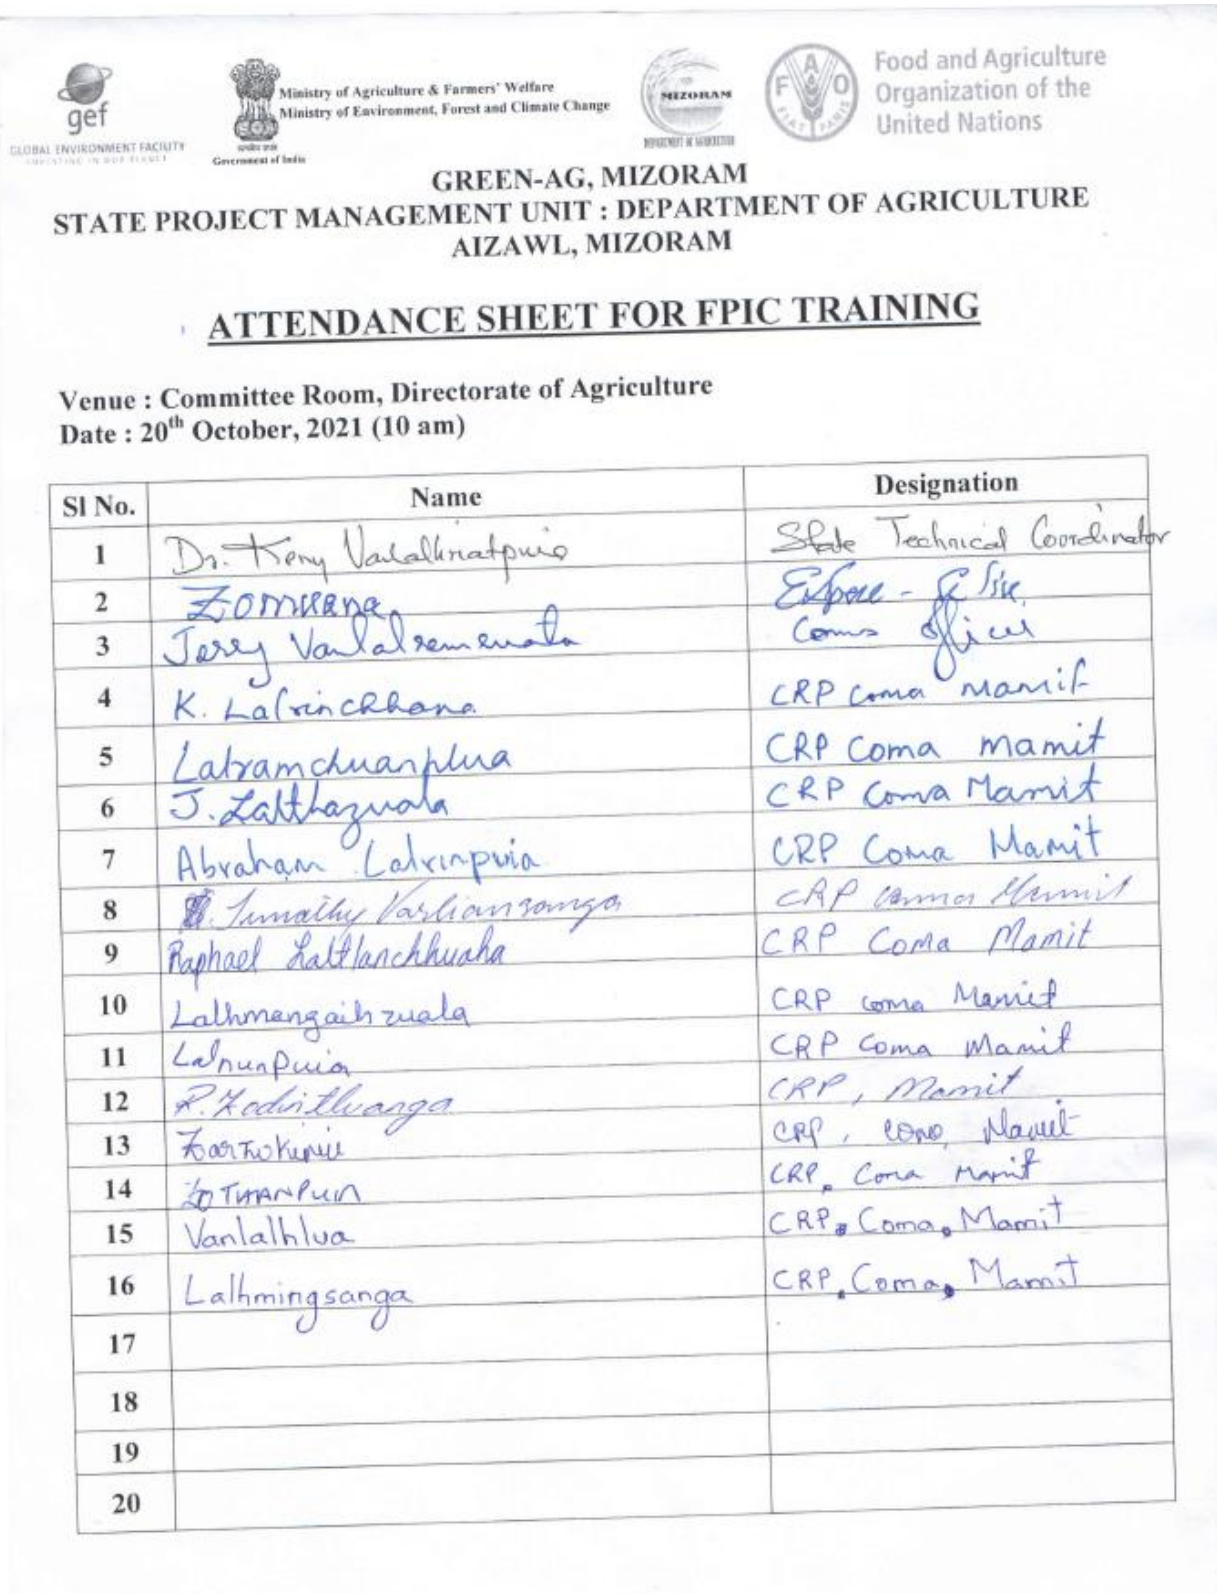 gef
GLOBAL ENVIRONMENT FACILITY
INVESTING IN OUR PLANET
Government of India
Ministry of Agriculture & Farmers' Welfare
Ministry of Environment, Forest and Climate Change
MIZORAM
DEPARTMENT OF AGRICULTURE
F A O
FIAT PANIS
Food and Agriculture
Organization of the
United Nations
GREEN-AG, MIZORAM
STATE PROJECT MANAGEMENT UNIT : DEPARTMENT OF AGRICULTURE
AIZAWL, MIZORAM
ATTENDANCE SHEET FOR FPIC TRAINING
Venue : Committee Room, Directorate of Agriculture
Date : 20th October, 2021 (10 am)
Sl No. Name Designation
1 Dr. State Technical Coordinator
2
3 Jerry Coms officer
4 K. Lalrinchhana CRP Coma Mamit
5 Lalramchuanphua CRP Coma Mamit
6 J. Lalthazuala CRP Coma Mamit
7 Abraham Lalrinpuia CRP Coma Mamit
8 CRP Coma Mamit
9 Raphael Laltlanchhuaha CRP Coma Mamit
10 Lalhmangaihzuala CRP Coma Mamit
11 Lalnunpuia CRP Coma Mamit
12 CRP, Mamit
13 CRP, Mamit
14 CRP, Coma Mamit
15 Vanlalhlua CRP, Coma, Mamit
16 Lalhmingsanga CRP, Coma, Mamit
17
18
19
20